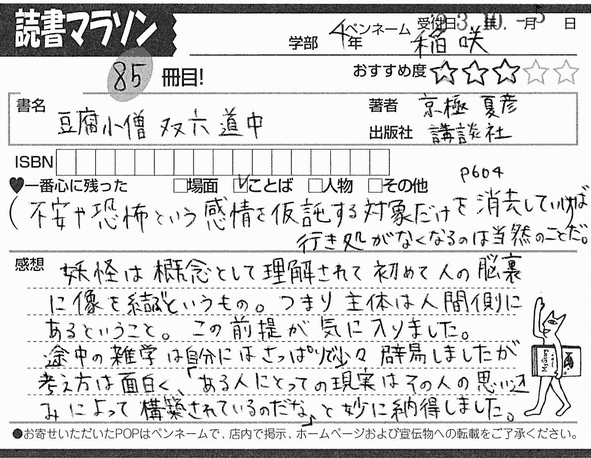 読書マラソン
学部 4年 ペンネーム 稲咲 受付日 3.10.-5 年 月 日
85冊目! おすすめ度 ☆☆☆☆☆
書名 豆腐小僧 双六道中 著者 京極 夏彦
出版社 講談社
ISBN
♥一番心に残った □場面 ☑ことば □人物 □その他 P604
(不安や恐怖という感情を仮託する対象だけを消去していけば
行き処がなくなるのは当然のことだ。
感想 妖怪は概念として理解されて初めて人の脳裏
に像を結ぶというもの。つまり主体は人間側に
あるということ。この前提が気に入りました。
途中の雑学は自分にはさっぱりで少々辟易しましたが
考え方は面白く、「ある人にとっての現実はその人の思い込
みによって構築されているのだな」と妙に納得しました。
●お寄せいただいたPOPはペンネームで、店内で掲示、ホームページおよび宣伝物への転載をご了承ください。